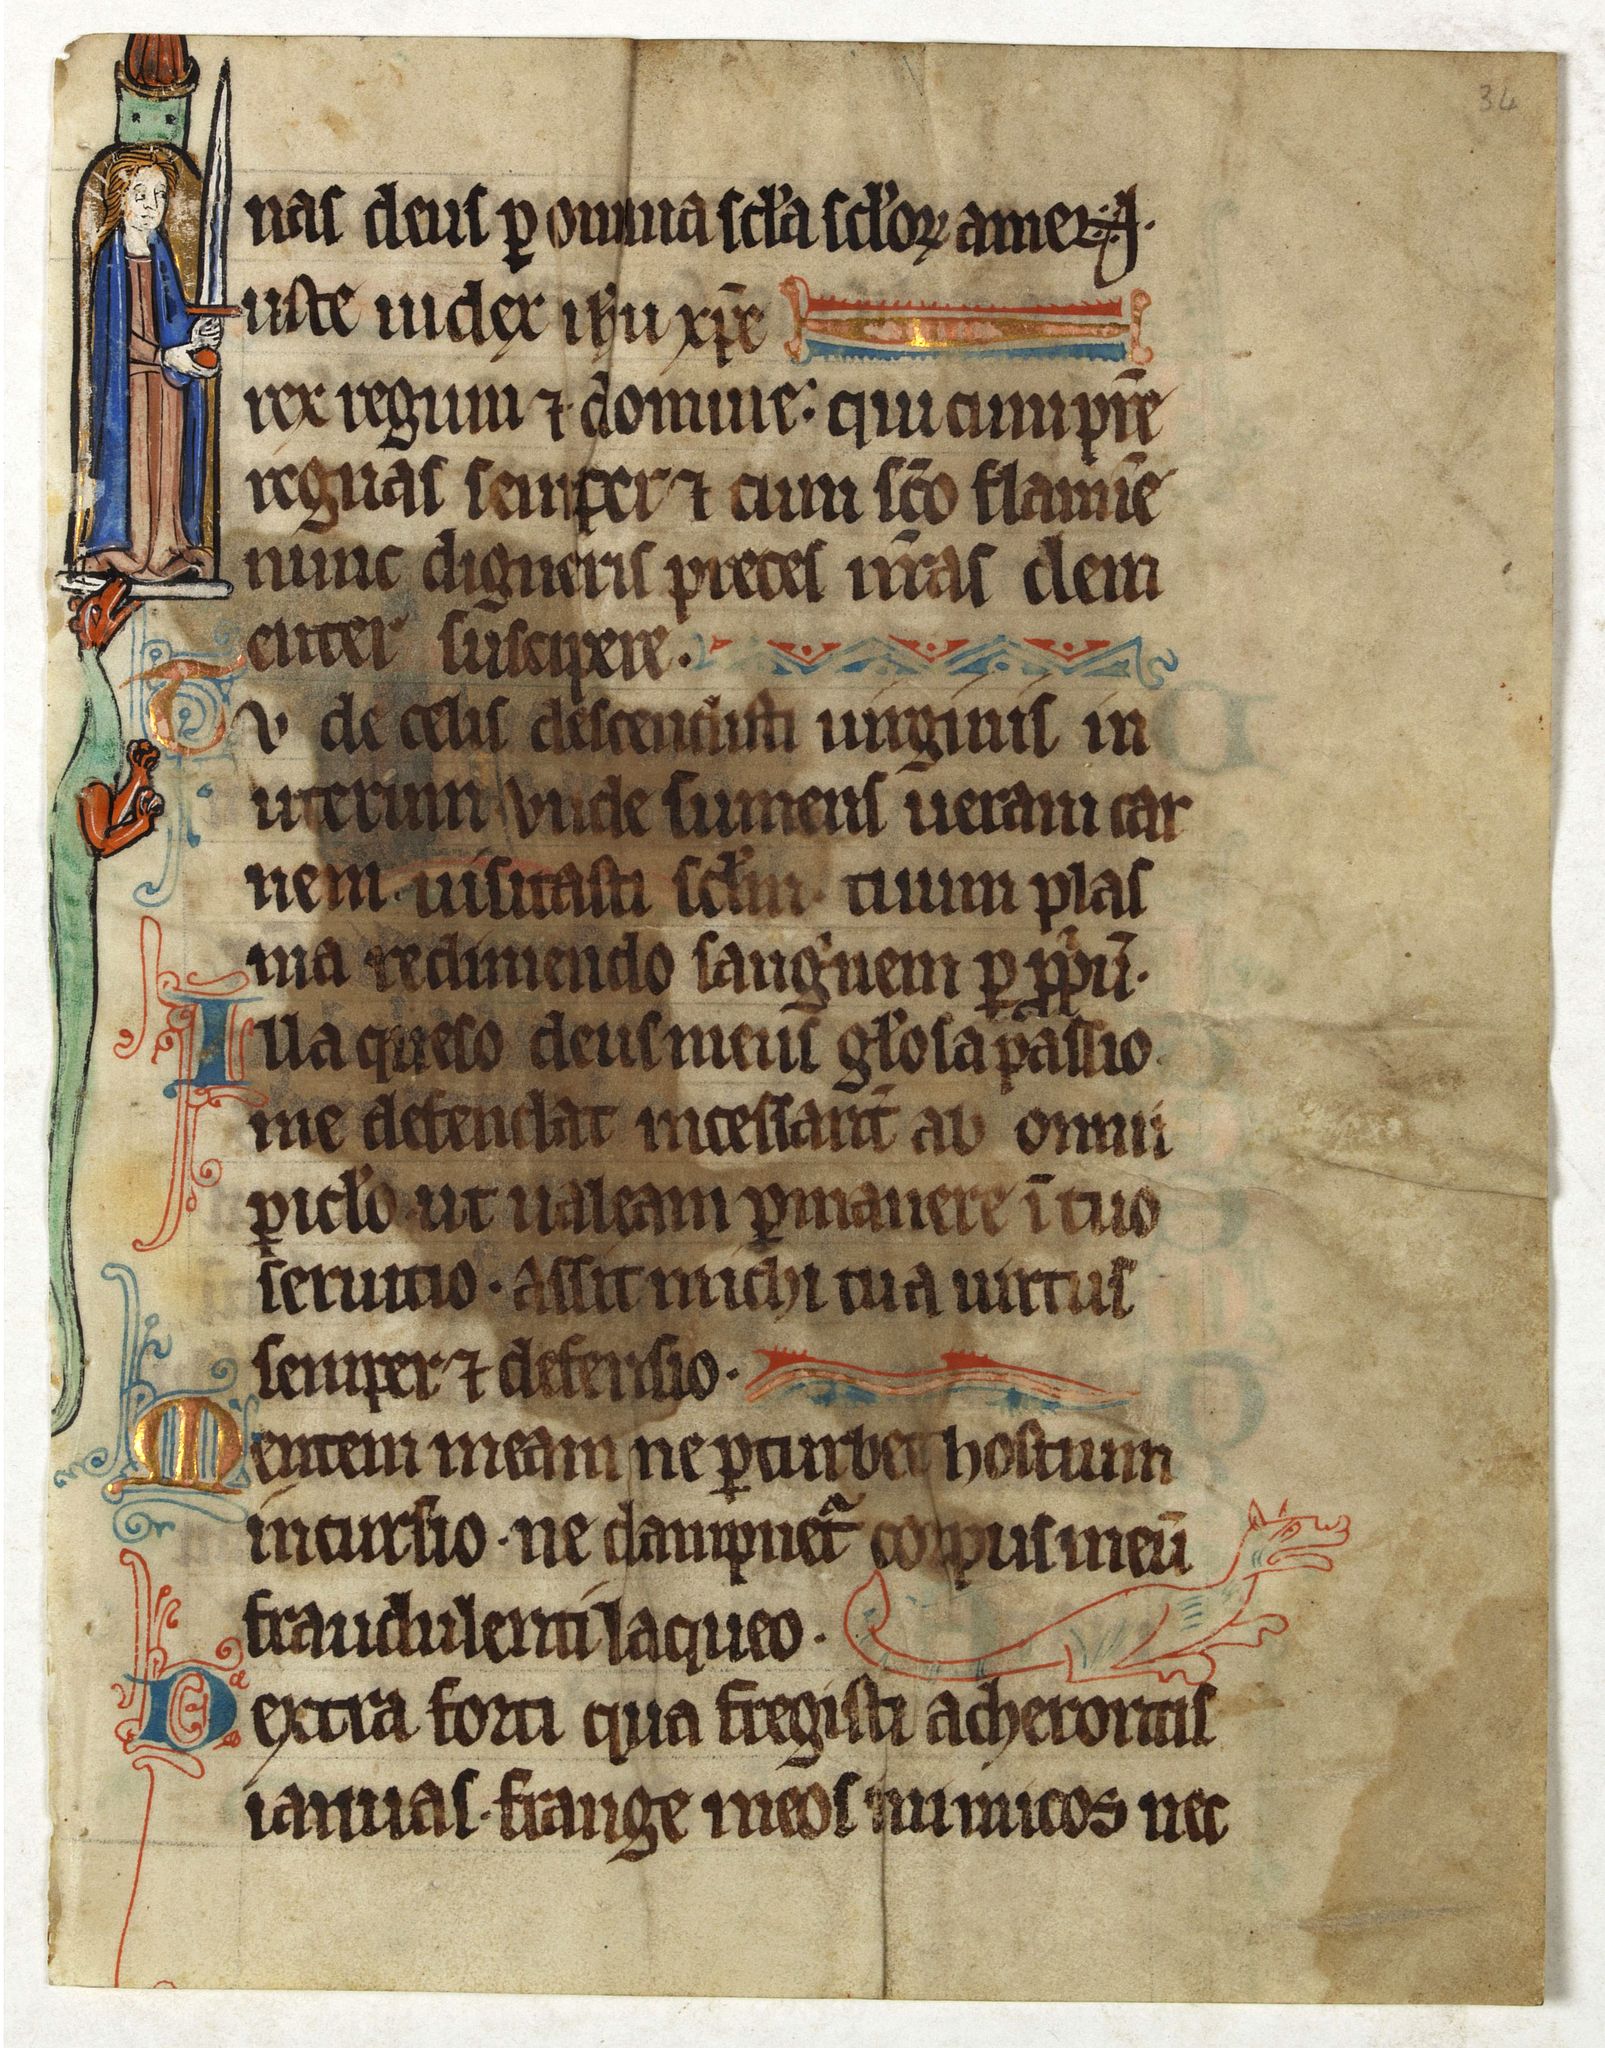 34
nas deus ꝑ omnia scl̕a scl̕oꝝ amen
uste iudex ih̄u xp̄e
rex regum ⁊ domine: qui cum pr̄e
regnas semper ⁊ cum sc̄o flamīe
nunc digneris preces nr̄as clem
enter suscipere.
Tv de celis descendisti uirginis in
uterum vnde sumens ueram car
nem. uisitasti scl̕m. tuum plas
ma redimendo sanguinem ꝑ pp̄ū.
Illa queso deus meus gl̕osa passio.
me defendat incessant̄ ab omni
ꝑicl̕o. ut ualeam ꝑmanere ī tuo
seruitio. assit michi tua uirtus
semper ⁊ defensio.
Mentem meam ne ꝑturbet hostium
incursio. ne dampnet̄ corpus meū
fraudulenti laqueo.
Dextra forti qua fregisti acherontis
ianuas. frange meos inimicos nec